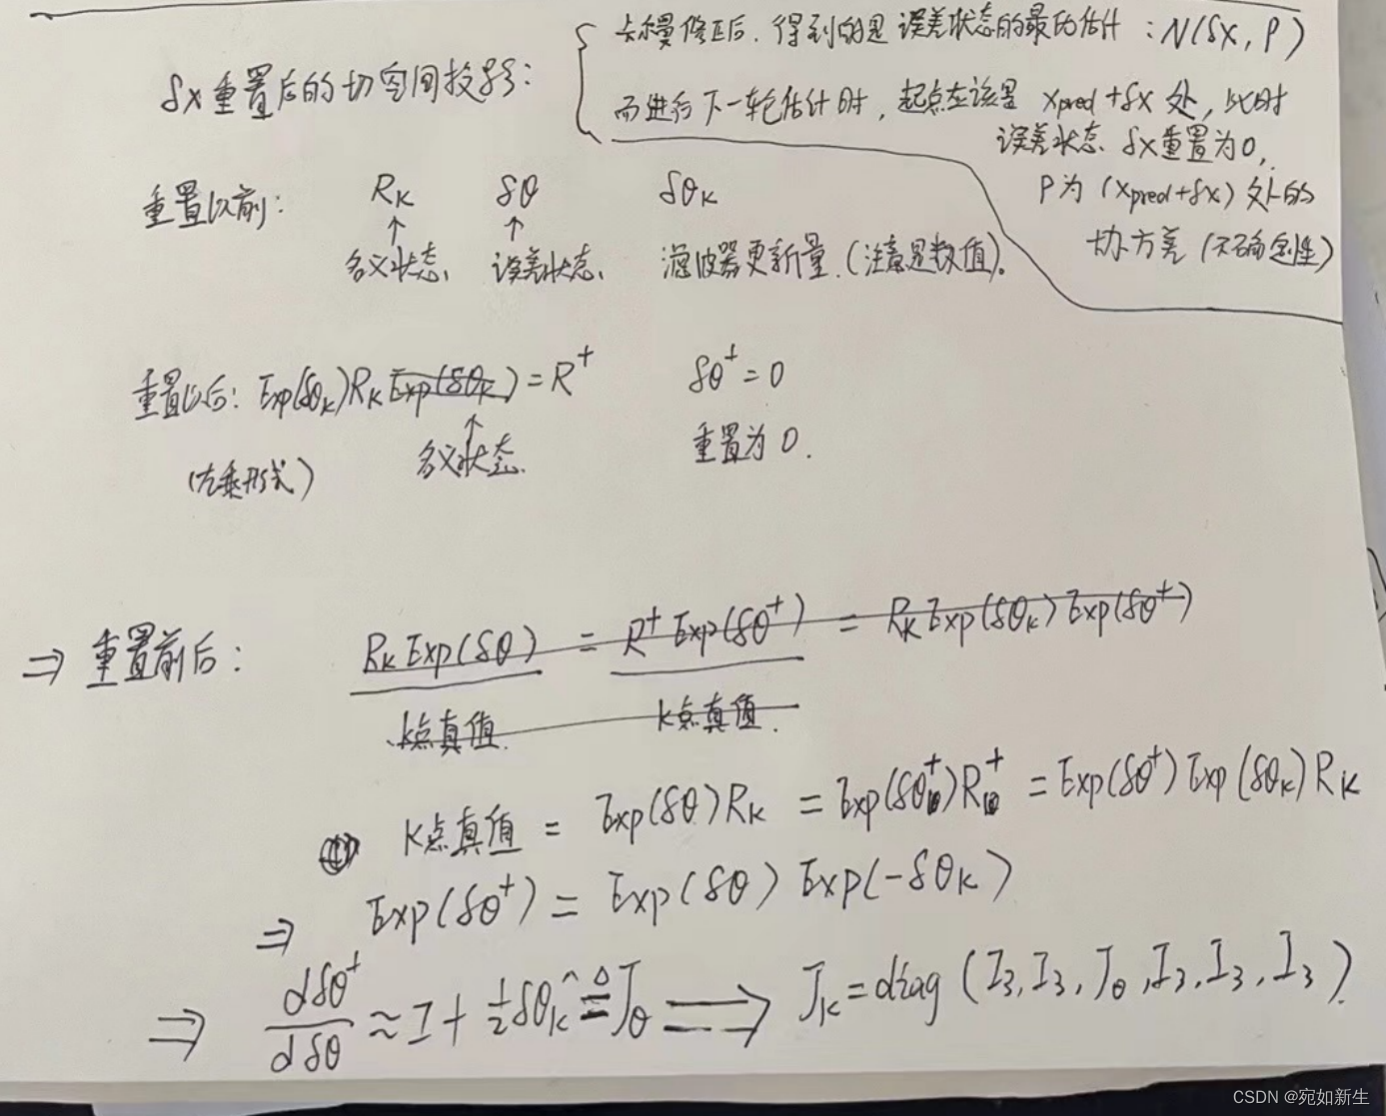 δx重置后的切空间投影:
卡尔曼修正后,得到的是误差状态的最的估计:N(δx, P)
而进行下一轮估计时,起点在该是 xpred+δx 处,此时
误差状态 δx重置为0,
P为(xpred+δx)处的
协方差(不确定性)
重置以前: Rk δθ δθk
名义状态、 误差状态、 滤波器更新量.(注意是数值)。
重置以后: Exp(δθk)Rk Exp(δθk) = R⁺ δθ⁺ = 0
(左乘形式) 名义状态. 重置为0.
⇒ 重置前后: Rk Exp(δθ) = R⁺ Exp(δθ⁺) = Rk Exp(δθk) Exp(δθ⁺)
k点真值. k点真值.
K点真值 = Exp(δθ)Rk = Exp(δθ⁺)R⁺ = Exp(δθ⁺) Exp(δθk) Rk
⇒ Exp(δθ⁺) = Exp(δθ) Exp(-δθk)
⇒ dδθ⁺/dδθ ≈ I + ½δθk^ ≜ Jθ ⟹ Jk = diag (I3, I3, Jθ, I3, I3, I3).
CSDN @宛如新生